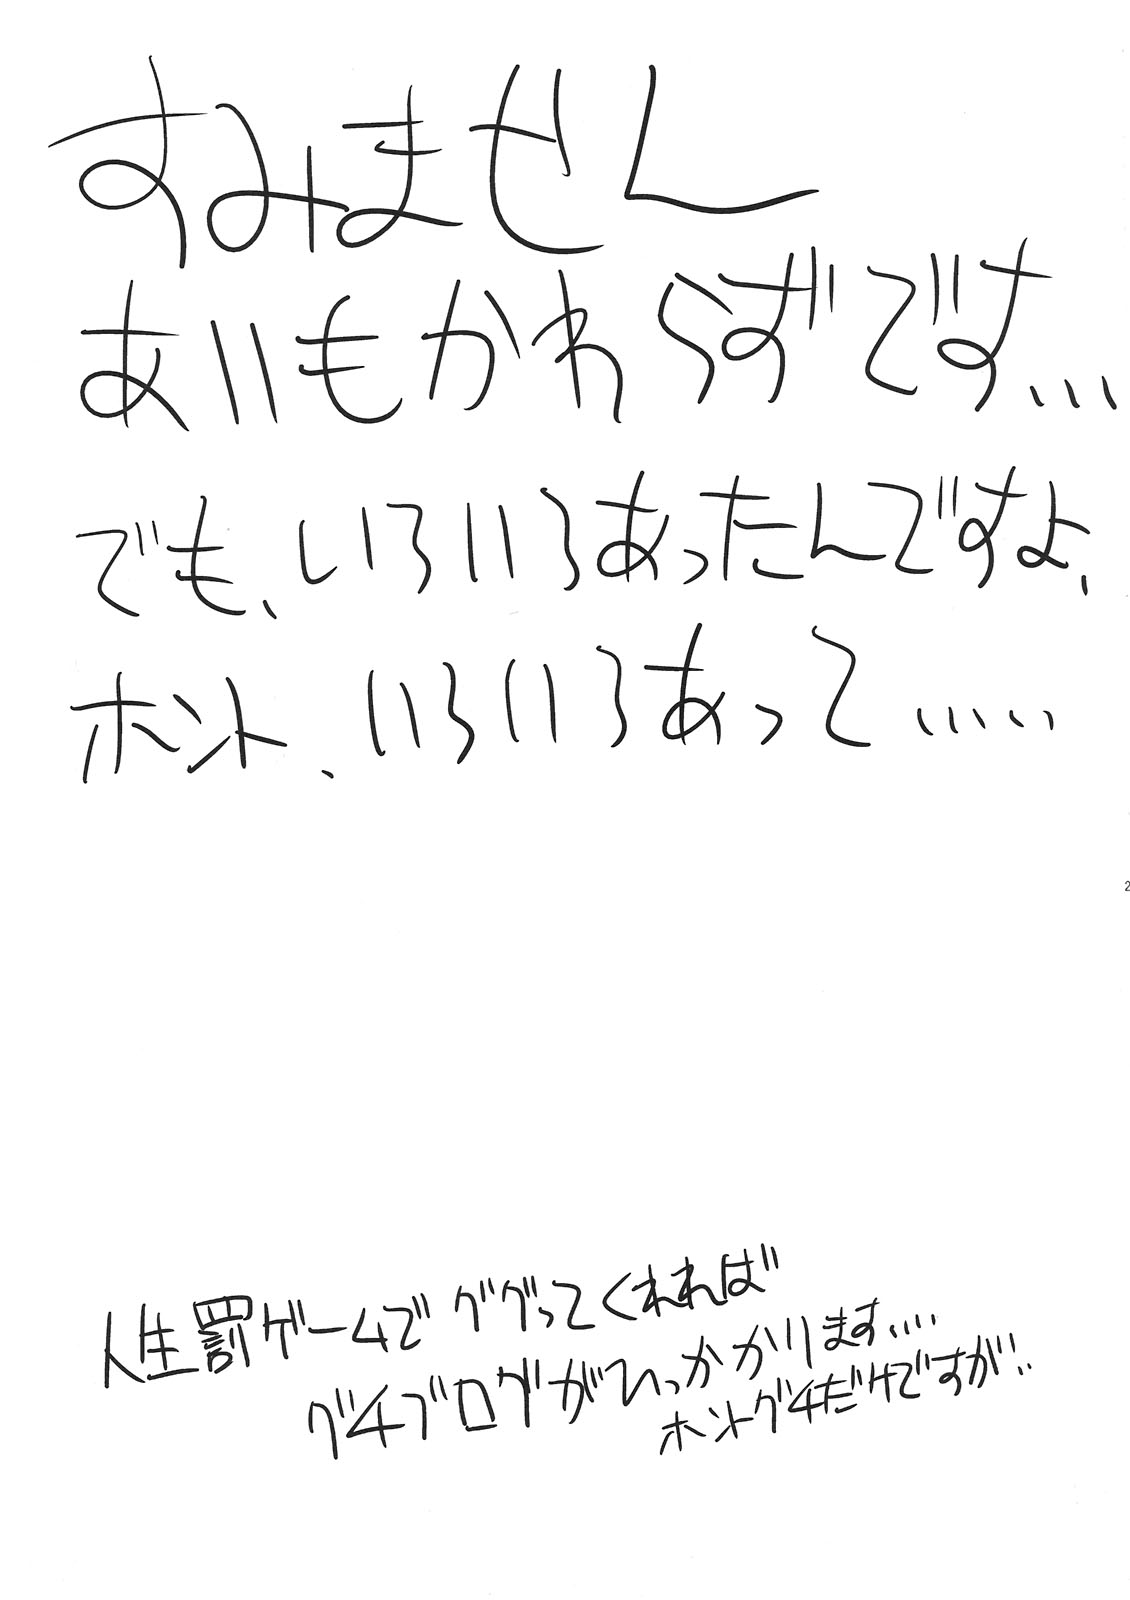 すみません
あいもかわらずです...
でも、いろいろあったんですよ、
ホント、いろいろあって.....
2
人生罰ゲームでググってくれれば
グチブログがひっかかります....
ホントグチだけですが...